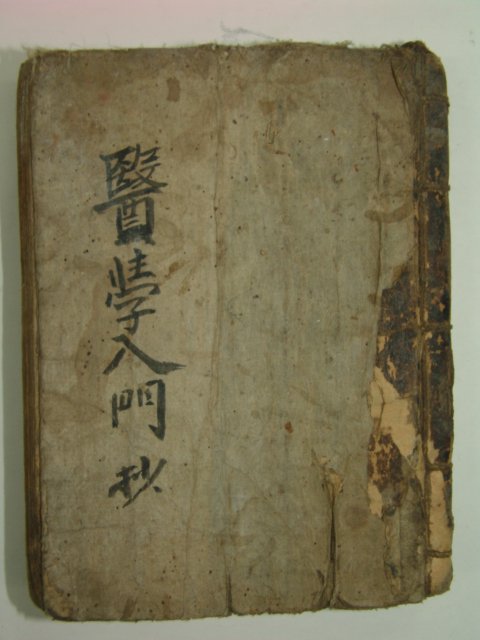 醫學入門 抄